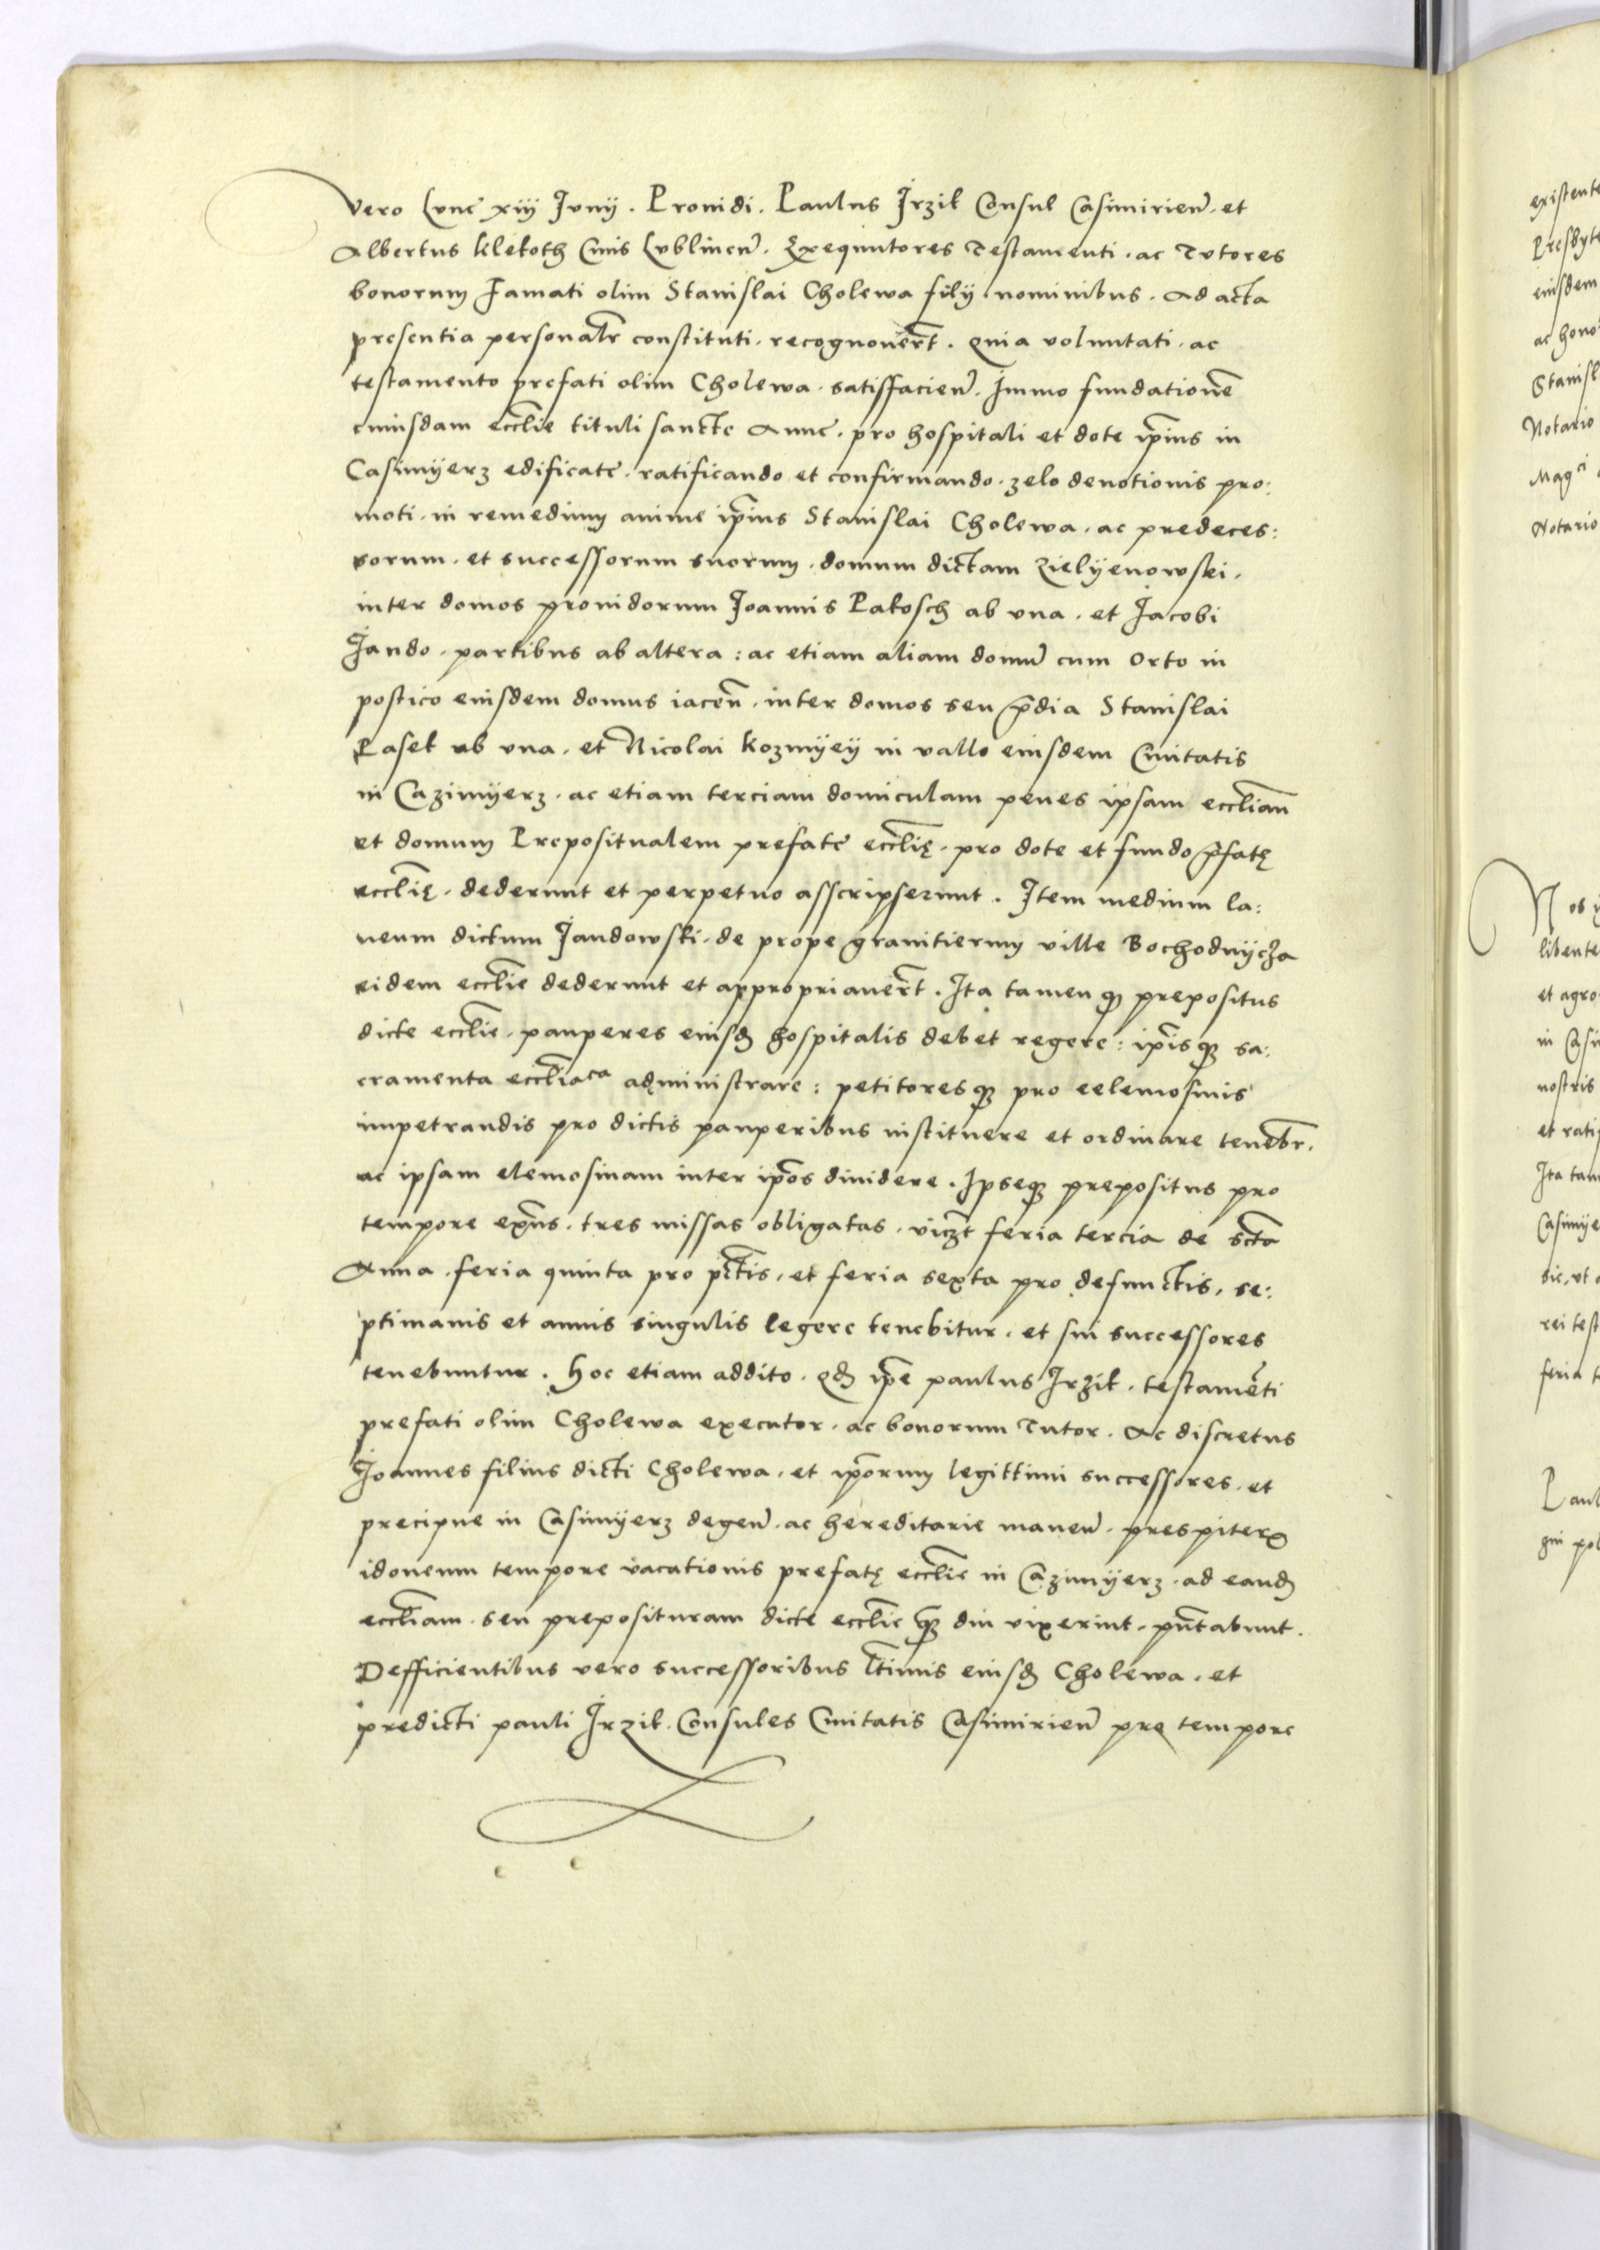 vero Lune xiij Junij . Prouidi . Paulus Jrzik Consul Casimirien̄ . et
Albertus klekoth Ciuis Lublinen̄ . Exequutores Testamenti . ac Tutores
bonorum Famati olim Stanislai Cholewa filij nominibus . Ad acta
presentia personalr̄ constituti . recognouer̄t . quia voluntati . ac
testamento prefati olim Cholewa . satisfacien̄ . Jmmo fundationē
cuiusdam eccl̄ie tituli sancte Anne . pro hospitali et dote ip̄ius in
Casimyerz edificate . ratificando et confirmando . zelo deuotionis pro:
moti . in remedium anime ip̄ius Stanislai Cholewa . ac predeces:
sorum . et successorum suorum . domum dictam Zielyenowski .
inter domos prouidorum Joannis Pakosch ab vna . et Jacobi
Jando . partibus ab altera : ac etiam aliam domū cum orto in
postico eiusdem domus iacen̄ . inter domos seu p̄dia Stanislai
Pasek ab vna . et Nicolai kozmyey in vallo eiusdem Ciuitatis
in Cazimyerz . ac etiam terciam domiculam penes ipsam eccl̄iam
et domum Prepositualem prefate eccl̄ię . pro dote et fundo p̄fatę
eccl̄ię . dederunt et perpetuo asscripserunt . Jtem medium la:
neum dictum Jandowski . de prope granitierum ville Bochodnycza
eidem eccl̄ie dederunt et appropriauer̄t . Jta tamen q̄ prepositus
dicte eccl̄ie . pauperes eiusđ hospitalis debet regere : ip̄isq3 sa:
cramenta eccl̄iaca administrare : petitoresq3 pro eelemosinis
impetrandis pro dictis pauperibus instituere et ordinare teneb̄r .
ac ipsam elemosinam inter ip̄os diuidere . Jpseq3 prepositus pro
tempore ex̄ns . tres missas obligatas . vicz̄t feria tercia de sc̄ta
Anna . feria quinta pro pc̄tis . et feria sexta pro defunctis . se:
ptimanis et annis singulis legere tenebitur . et sui successores
tenebuntur . hoc etiam addito . qđ ip̄e paulus Jrzik . testamēti
prefati olim Cholewa executor . ac bonorum Tutor . Ac discretus
Joannes filius dicti Cholewa . et ip̄orum legittimi successores . et
precipue in Casimyerz degen̄ . ac hereditarie manen̄ . prespiterū
idoneum tempore vacationis prefatę eccl̄ie in Cazimyerz . ad eanđ
eccl̄iam . seu preposituram dicte eccl̄ie q̄3 diu vixerint . pn̄tabunt .
Defficientibus vero successoribus l̄timis eiusđ Cholewa . et
predicti pauli Jrzik . Consules Ciuitatis Casimirien̄ pro tempore
existente
Presbyte
eiusdem
ac hono
Stanisl
Notario
Magci
Notario
Nos
libente
et agro
in Casi
nostris
et rati
Jta tam
Casimye
sic, vt
rei test
feria t
Paul